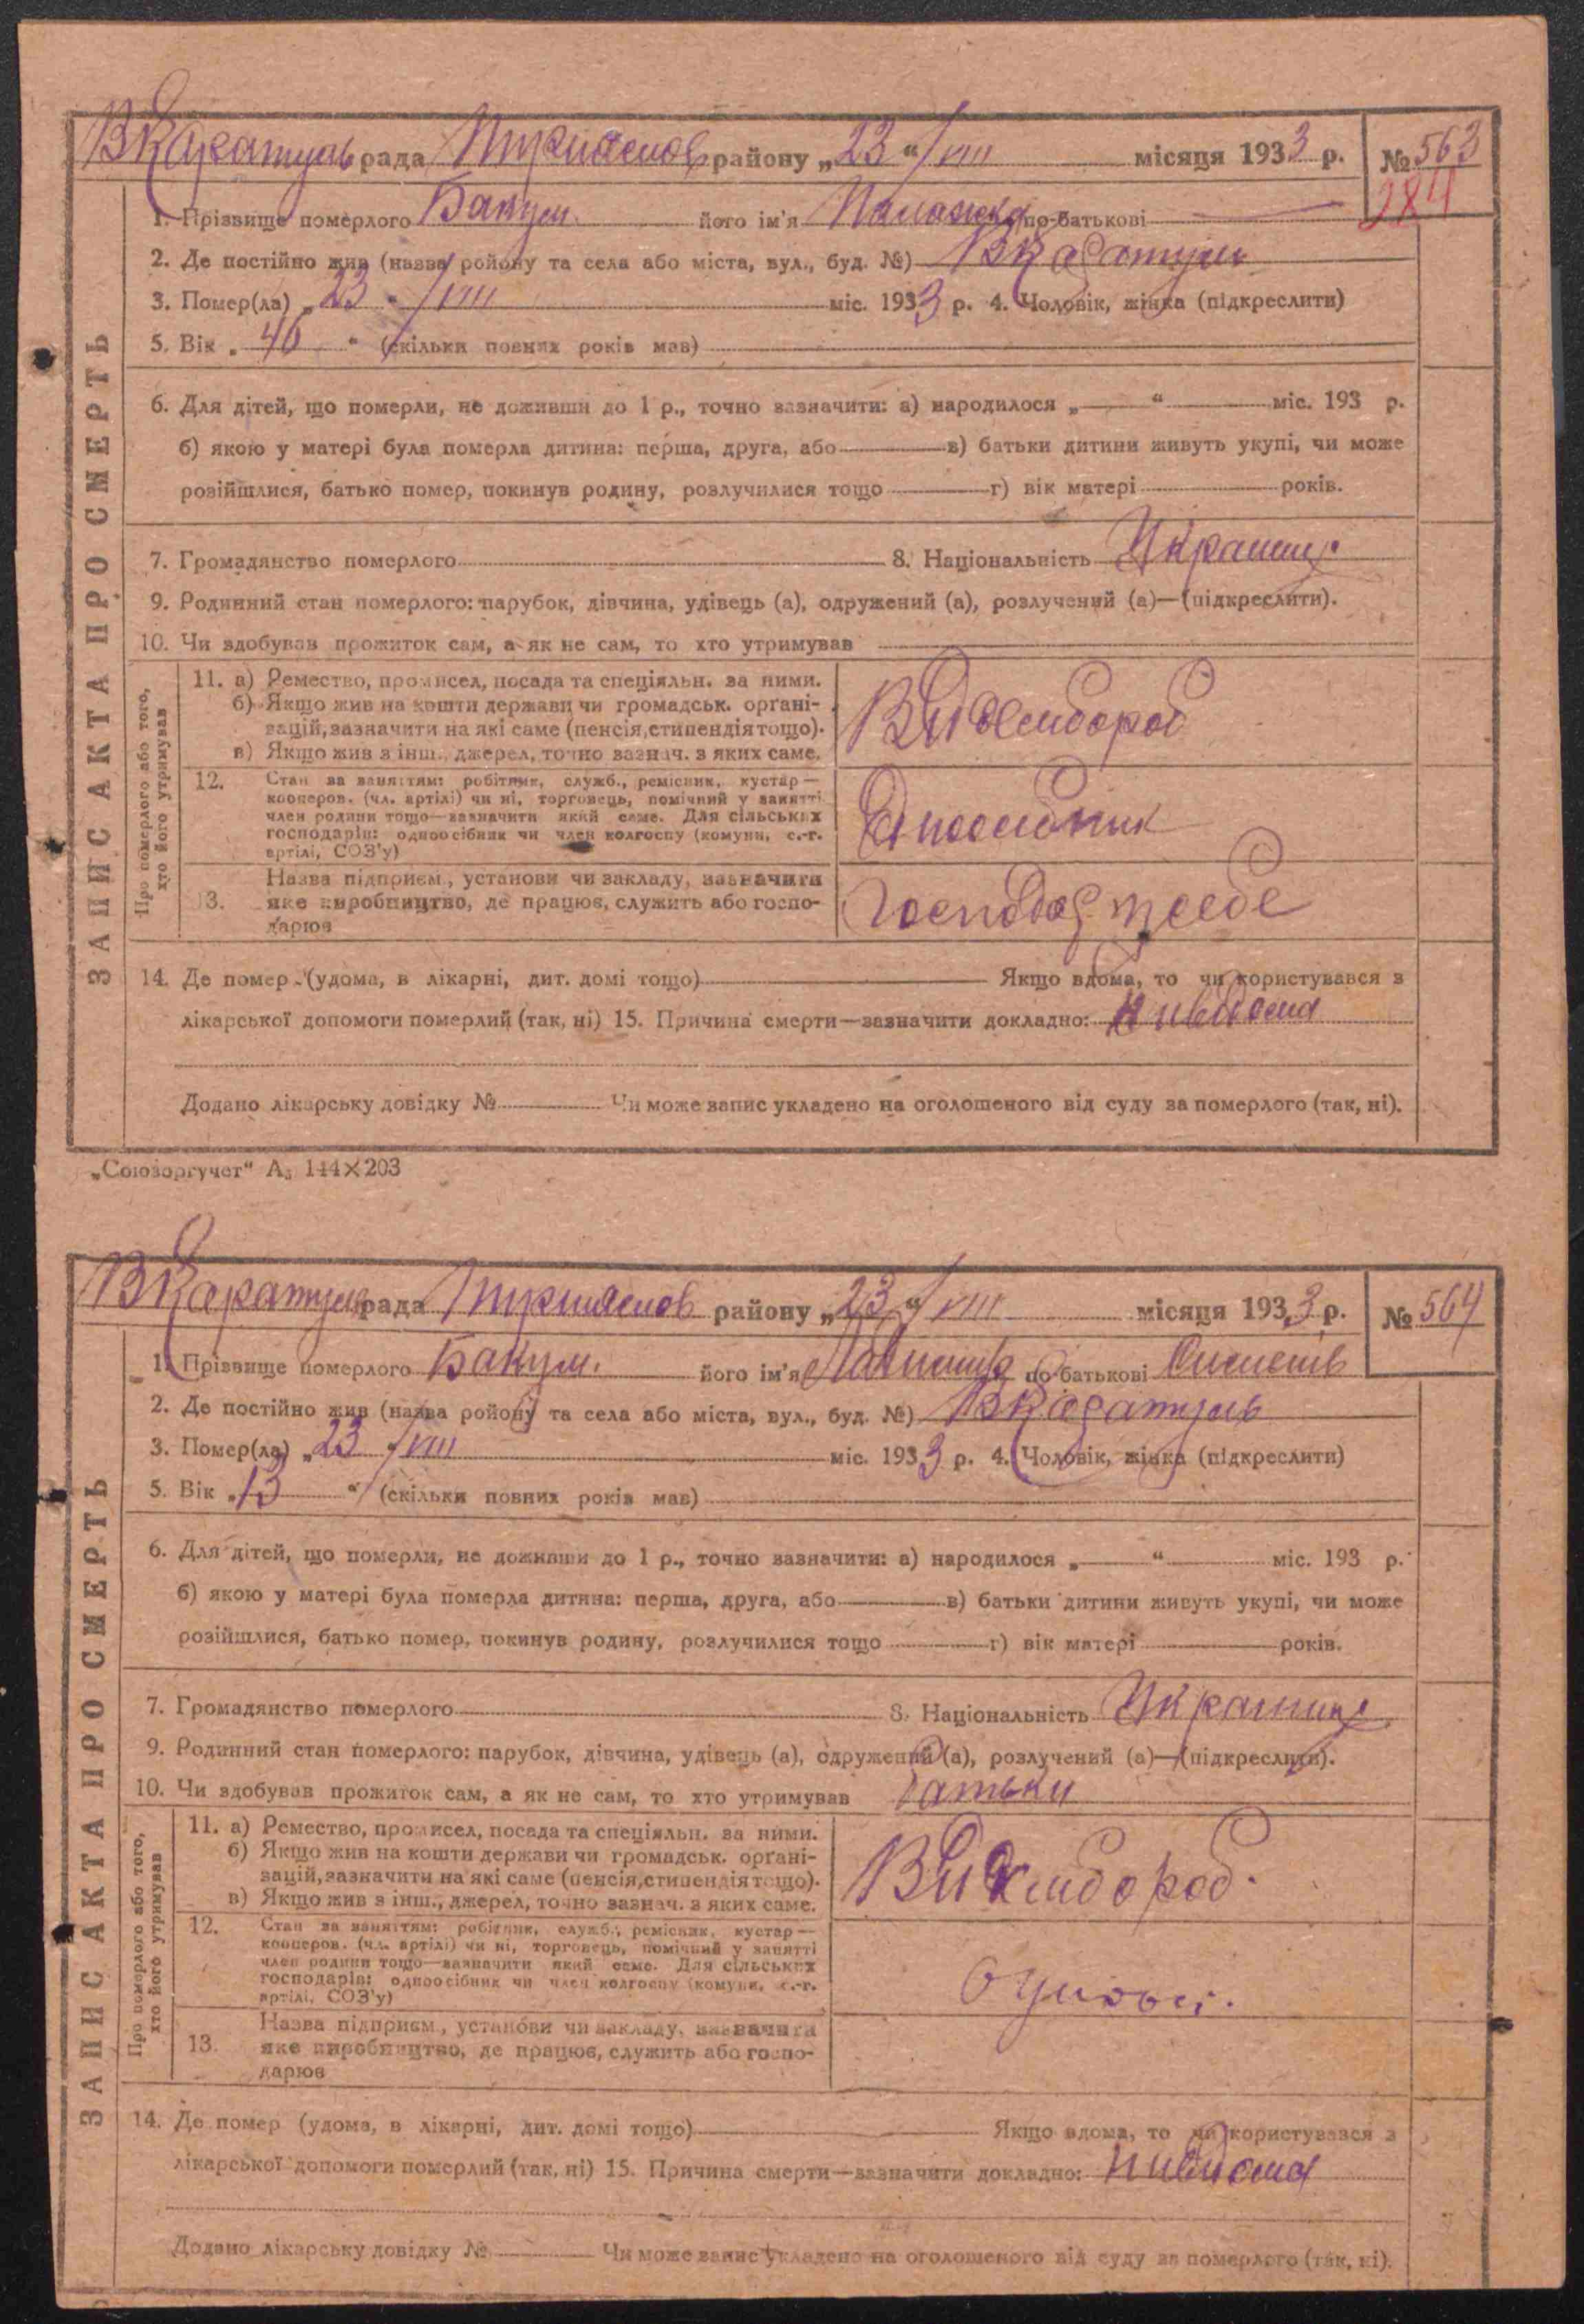 ВКаратуль рада Переяслов району „23“ VIII місяця 1933 р. № 563
284
1. Прізвище померлого Бакум його ім'я Палажка по-батькові
2. Де постійно жив (назва ройону та села або міста, вул., буд. №) ВКаратуль
3. Помер(ла) „23“ VIII міс. 1933 р. 4. Чоловік, жінка (підкреслити)
5. Вік „40“ (скільки повних років мав)
6. Для дітей, що померли, не доживши до 1 р., точно зазначити: а) народилося „ “ міс. 193 р.
б) якою у матері була померла дитина: перша, друга, або в) батьки дитини живуть укупі, чи може
розійшлися, батько помер, покинув родину, розлучилися тощо г) вік матері років.
7. Громадянство померлого 8. Національність Украинц
9. Родинний стан померлого: парубок, дівчина, удівець (а), одружений (а), розлучений (а)—(підкреслити).
10. Чи здобував прожиток сам, а як не сам, то хто утримував
ЗАПИС АКТА ПРО СМЕРТЬ
Про померлого або того, хто його утримував
11. а) Ремество, промисел, посада та спеціяльн. за ними.
б) Якщо жив на кошти держави чи громадськ. орґані-
зацій, зазначити на які саме (пенсія, стипендія тощо).
в) Якщо жив з інш., джерел, точно зазнач. з яких саме.
12. Стан за заняттям: робітник, служб., ремісник, кустар—
кооперов. (чл. артілі) чи ні, торговець, помічний у занятті
член родини тощо—зазначити який саме. Для сільських
господарів: одноосібник чи член колгоспу (комуни, с.-г.
артілі, СОЗ'у)
Одноосібник
Назва підприєм., установи чи закладу, зазначити
13. яке виробництво, де працює, служить або госпо-
дарює
Господар. в себе
14. Де помер (удома, в лікарні, дит. домі тощо) Якщо вдома, то чи користувався з
лікарської допомоги померлий (так, ні) 15. Причина смерти—зазначити докладно:
Додано лікарську довідку № Чи може запис укладено на оголошеного від суду за померлого (так, ні).
„Союзоргучет“ А₅ 144×203
ВКаратуль рада Переяслов району „23“ VIII місяця 1933 р. № 564
1. Прізвище померлого Бакум. його ім'я по-батькові
2. Де постійно жив (назва ройону та села або міста, вул., буд. №) ВКаратуль
3. Помер(ла) „23“ VIII міс. 1933 р. 4. Чоловік, жінка (підкреслити)
5. Вік „13“ (скільки повних років мав)
6. Для дітей, що померли, не доживши до 1 р., точно зазначити: а) народилося „ “ міс. 193 р.
б) якою у матері була померла дитина: перша, друга, або в) батьки дитини живуть укупі, чи може
розійшлися, батько помер, покинув родину, розлучилися тощо г) вік матері років.
7. Громадянство померлого 8. Національність Украинц
9. Родинний стан померлого: парубок, дівчина, удівець (а), одружений (а), розлучений (а)—(підкреслити).
10. Чи здобував прожиток сам, а як не сам, то хто утримував батьки
ЗАПИС АКТА ПРО СМЕРТЬ
Про померлого або того, хто його утримував
11. а) Ремество, промисел, посада та спеціяльн. за ними.
б) Якщо жив на кошти держави чи громадськ. орґані-
зацій, зазначити на які саме (пенсія, стипендія тощо).
в) Якщо жив з інш., джерел, точно зазнач. з яких саме.
12. Стан за заняттям: робітник, служб., ремісник, кустар—
кооперов. (чл. артілі) чи ні, торговець, помічний у занятті
член родини тощо—зазначити який саме. Для сільських
господарів: одноосібник чи член колгоспу (комуни, с.-г.
артілі, СОЗ'у)
Назва підприєм., установи чи закладу, зазначити
13. яке виробництво, де працює, служить або госпо-
дарює
14. Де помер (удома, в лікарні, дит. домі тощо) Якщо вдома, то чи користувався з
лікарської допомоги померлий (так, ні) 15. Причина смерти—зазначити докладно:
Додано лікарську довідку № Чи може запис укладено на оголошеного від суду за померлого (так, ні).